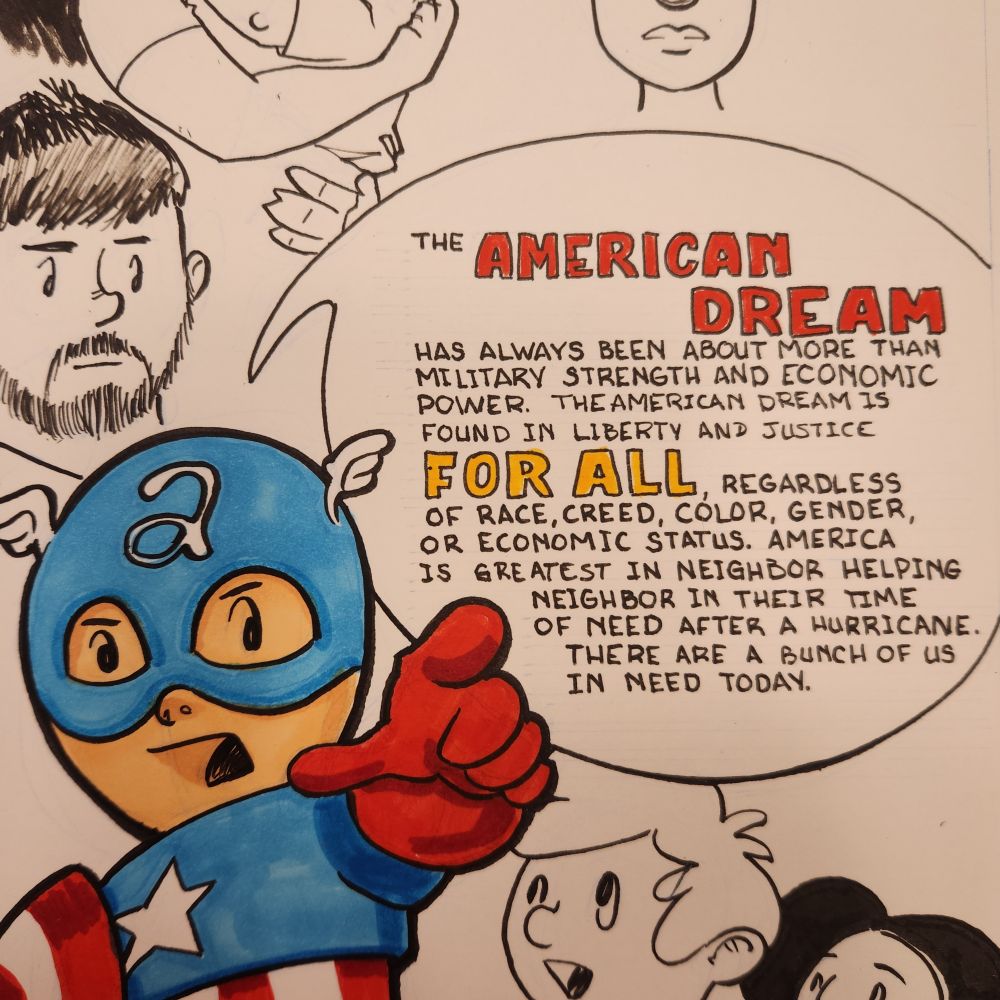 a
THE AMERICAN
DREAM
HAS ALWAYS BEEN ABOUT MORE THAN
MILITARY STRENGTH AND ECONOMIC
POWER. THE AMERICAN DREAM IS
FOUND IN LIBERTY AND JUSTICE
FOR ALL, REGARDLESS
OF RACE, CREED, COLOR, GENDER,
OR ECONOMIC STATUS. AMERICA
IS GREATEST IN NEIGHBOR HELPING
NEIGHBOR IN THEIR TIME
OF NEED AFTER A HURRICANE.
THERE ARE A BUNCH OF US
IN NEED TODAY.